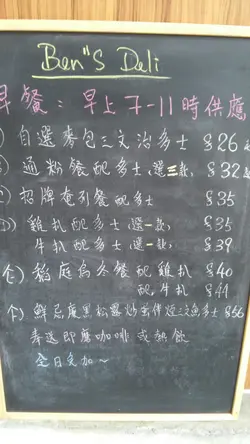 Ben"s Deli
早餐：早上7-11時供應
) 自選麥包三文治多士 $26
通粉餐配多士，(選三款) $32
) 招牌奄列餐配多 $35
D) 雞扒配多士(選一款) $35
牛扒配多士(選一款) $39
E) 稻庭烏冬餐配雞扒 $40
配牛扒 $41
鮮忌廉黑松露炒蛋伴煙三文魚多士 $56
奉送即磨咖啡或熱飲
全日